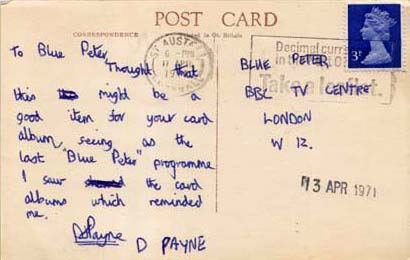 POST CARD
CORRESPONDENCE
in Gt. Britain
ST AUSTELL
Decimal curr
in t
Take a leaflet.
3P
To Blue Peter,
Thought that
this might be a
good item for your card
album, seeing as the
last "Blue Peter" programme
I saw the card
albums which reminded
me.
DPayne D PAYNE
BLUE PETER
BBC TV CENTRE
LONDON
W 12.
13 APR 1971